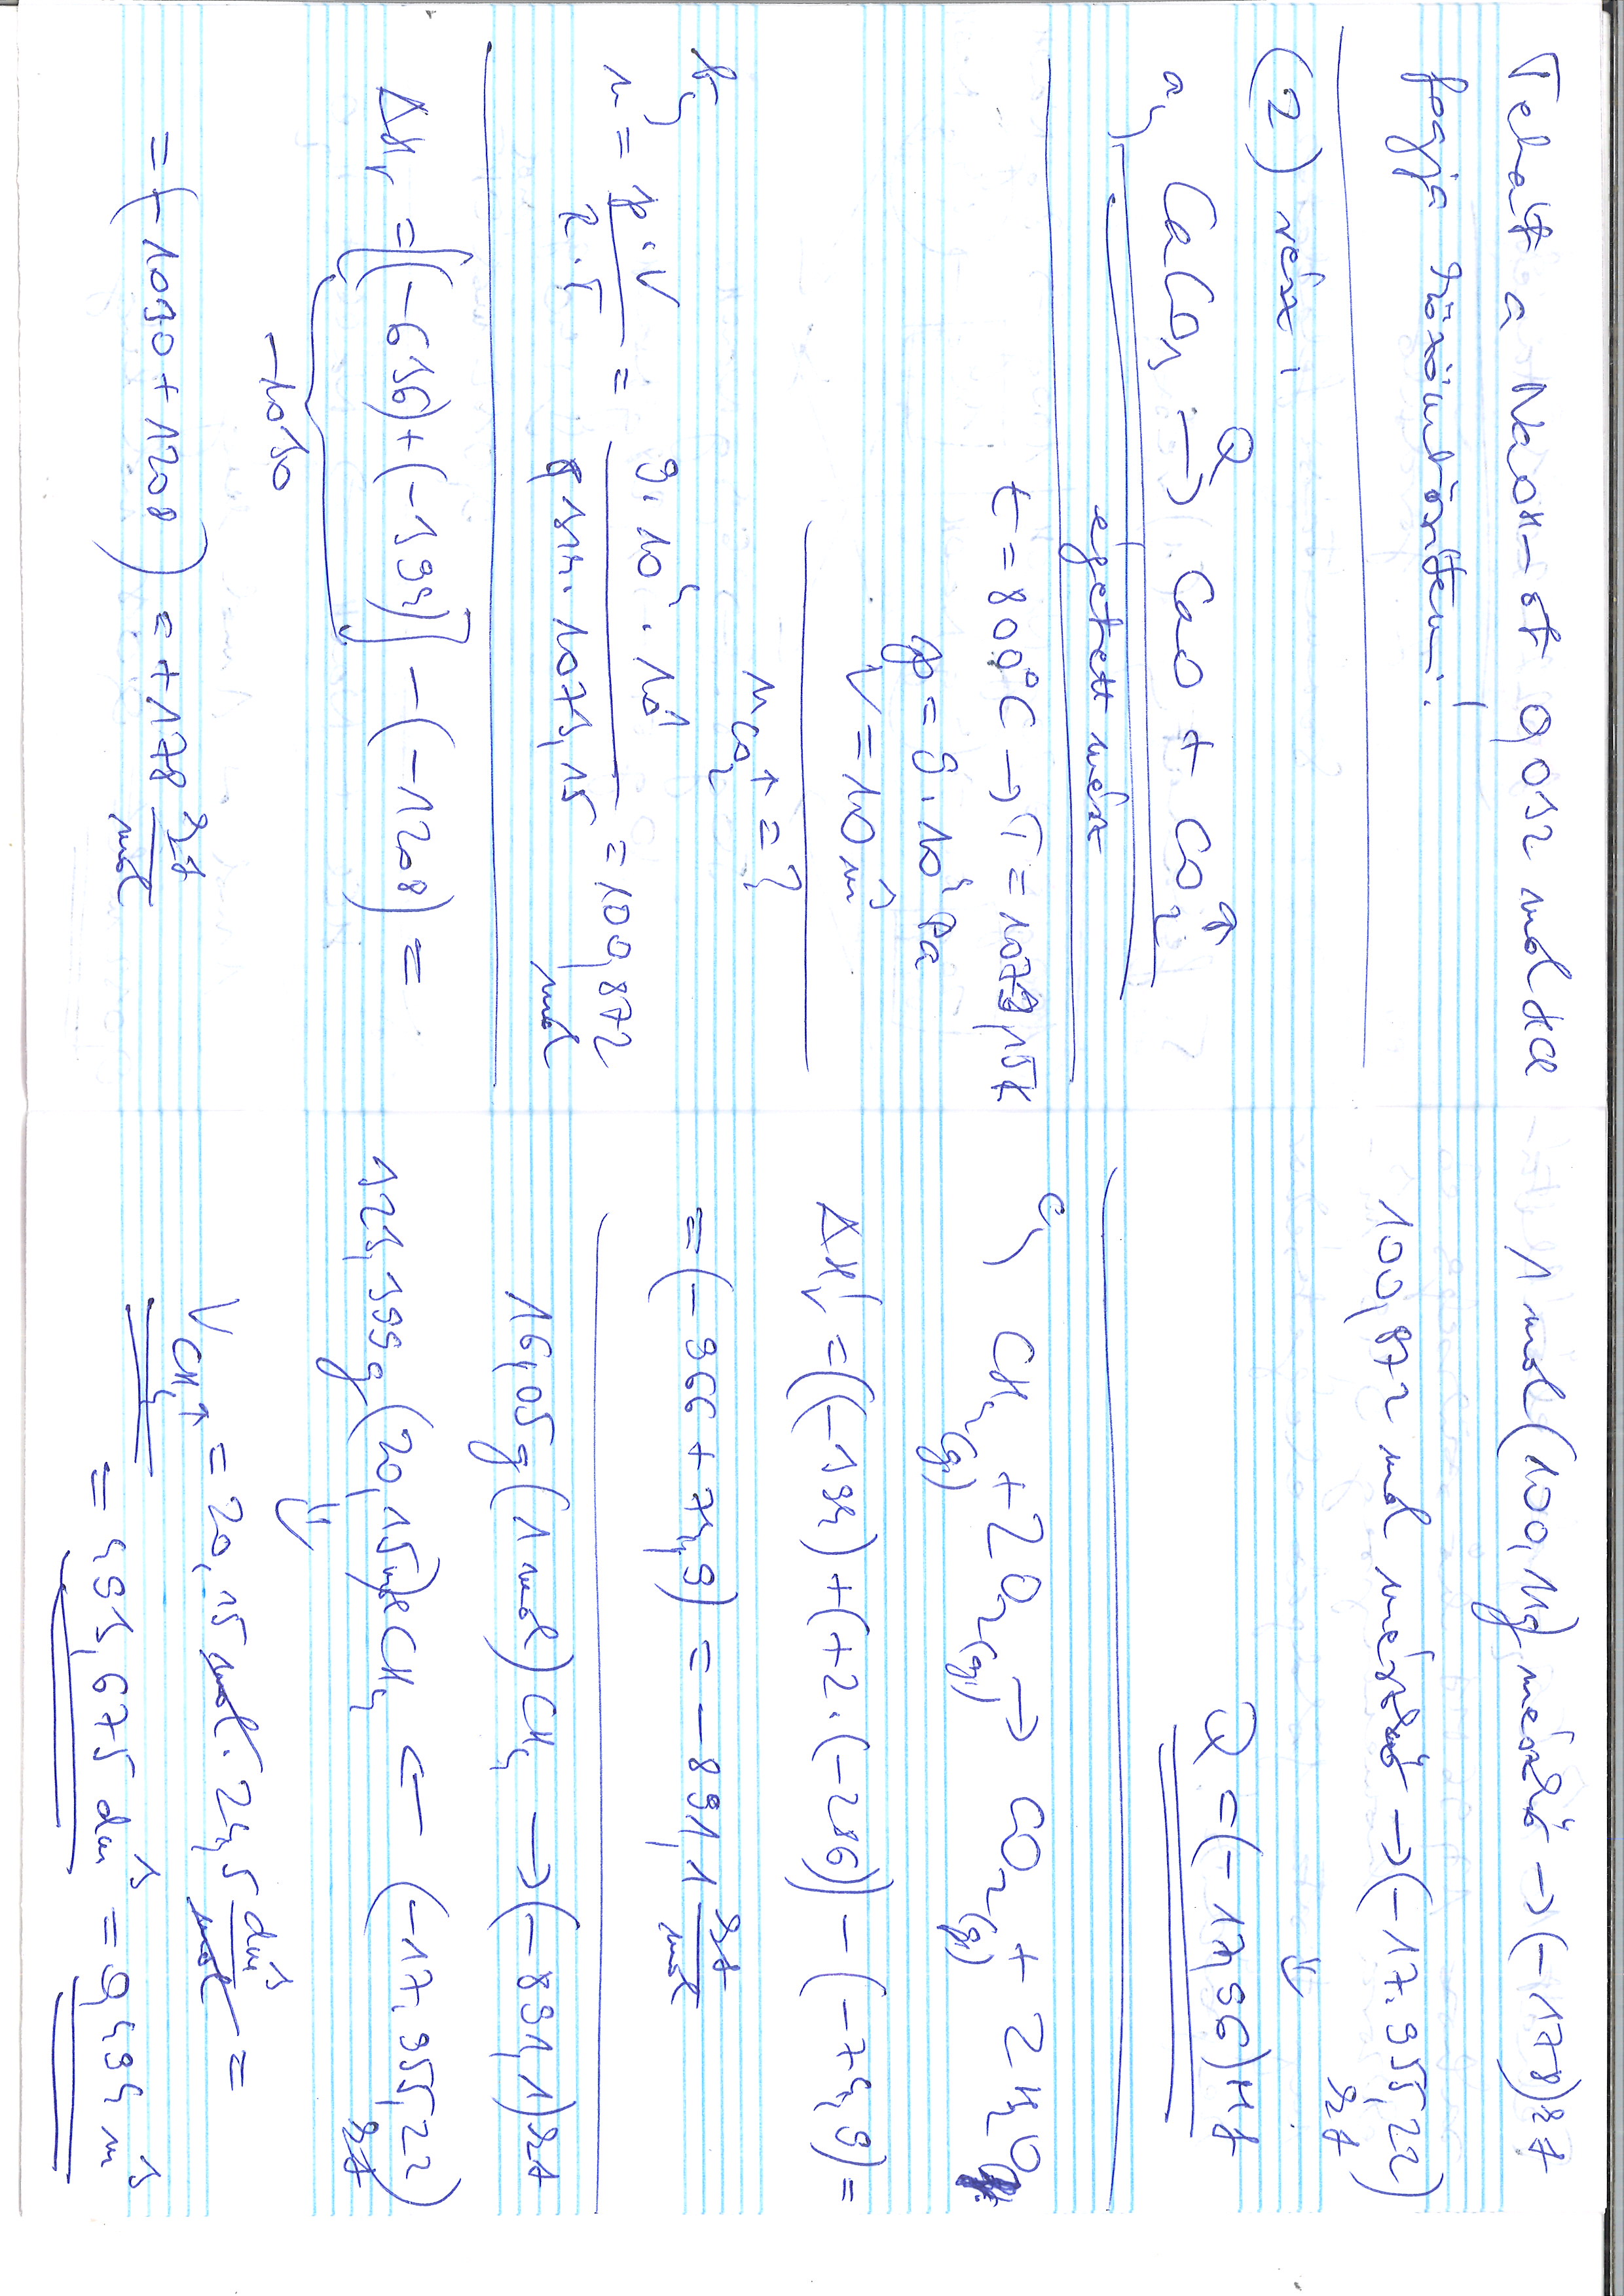 Tehát a NaOH-ot 0,052 mol HCl
fogja közömbösíteni!
(2) rész:
a, CaCO₃ →(Q) CaO + CO₂↑
égetett mész
t = 800°C → T = 1073,15 K
p = 9·10⁴ Pa
V = 10 m³
n CO₂↑ = ?
b,
n = p·V / R·T = 9·10⁴·10¹ / 8,314·1073,15 = 100,872 mol
ΔHr = [(-636)+(-394)] - (-1208) =
-1030
= (-1030+1208) = +178 kJ/mol
1 mol (100,1 g) mészkő → (-178) kJ
100,872 mol mészkő → (-17.955,22) kJ
⇓
Q = (-17,96) MJ
c, CH₄(g) + 2O₂(g) → CO₂(g) + 2H₂O
ΔHr = ((-394)+(+2·(-286)) - (-74,9) =
= (-966+74,9) = -891,1 kJ/mol
16,05 g (1 mol) CH₄ → (-891,1) kJ
323,399 g (20,15 mol) CH₄ ← (-17.955,22) kJ
⇓
V CH₄↑ = 20,15 mol · 24,5 dm³/mol =
= 493,675 dm³ = 0,494 m³